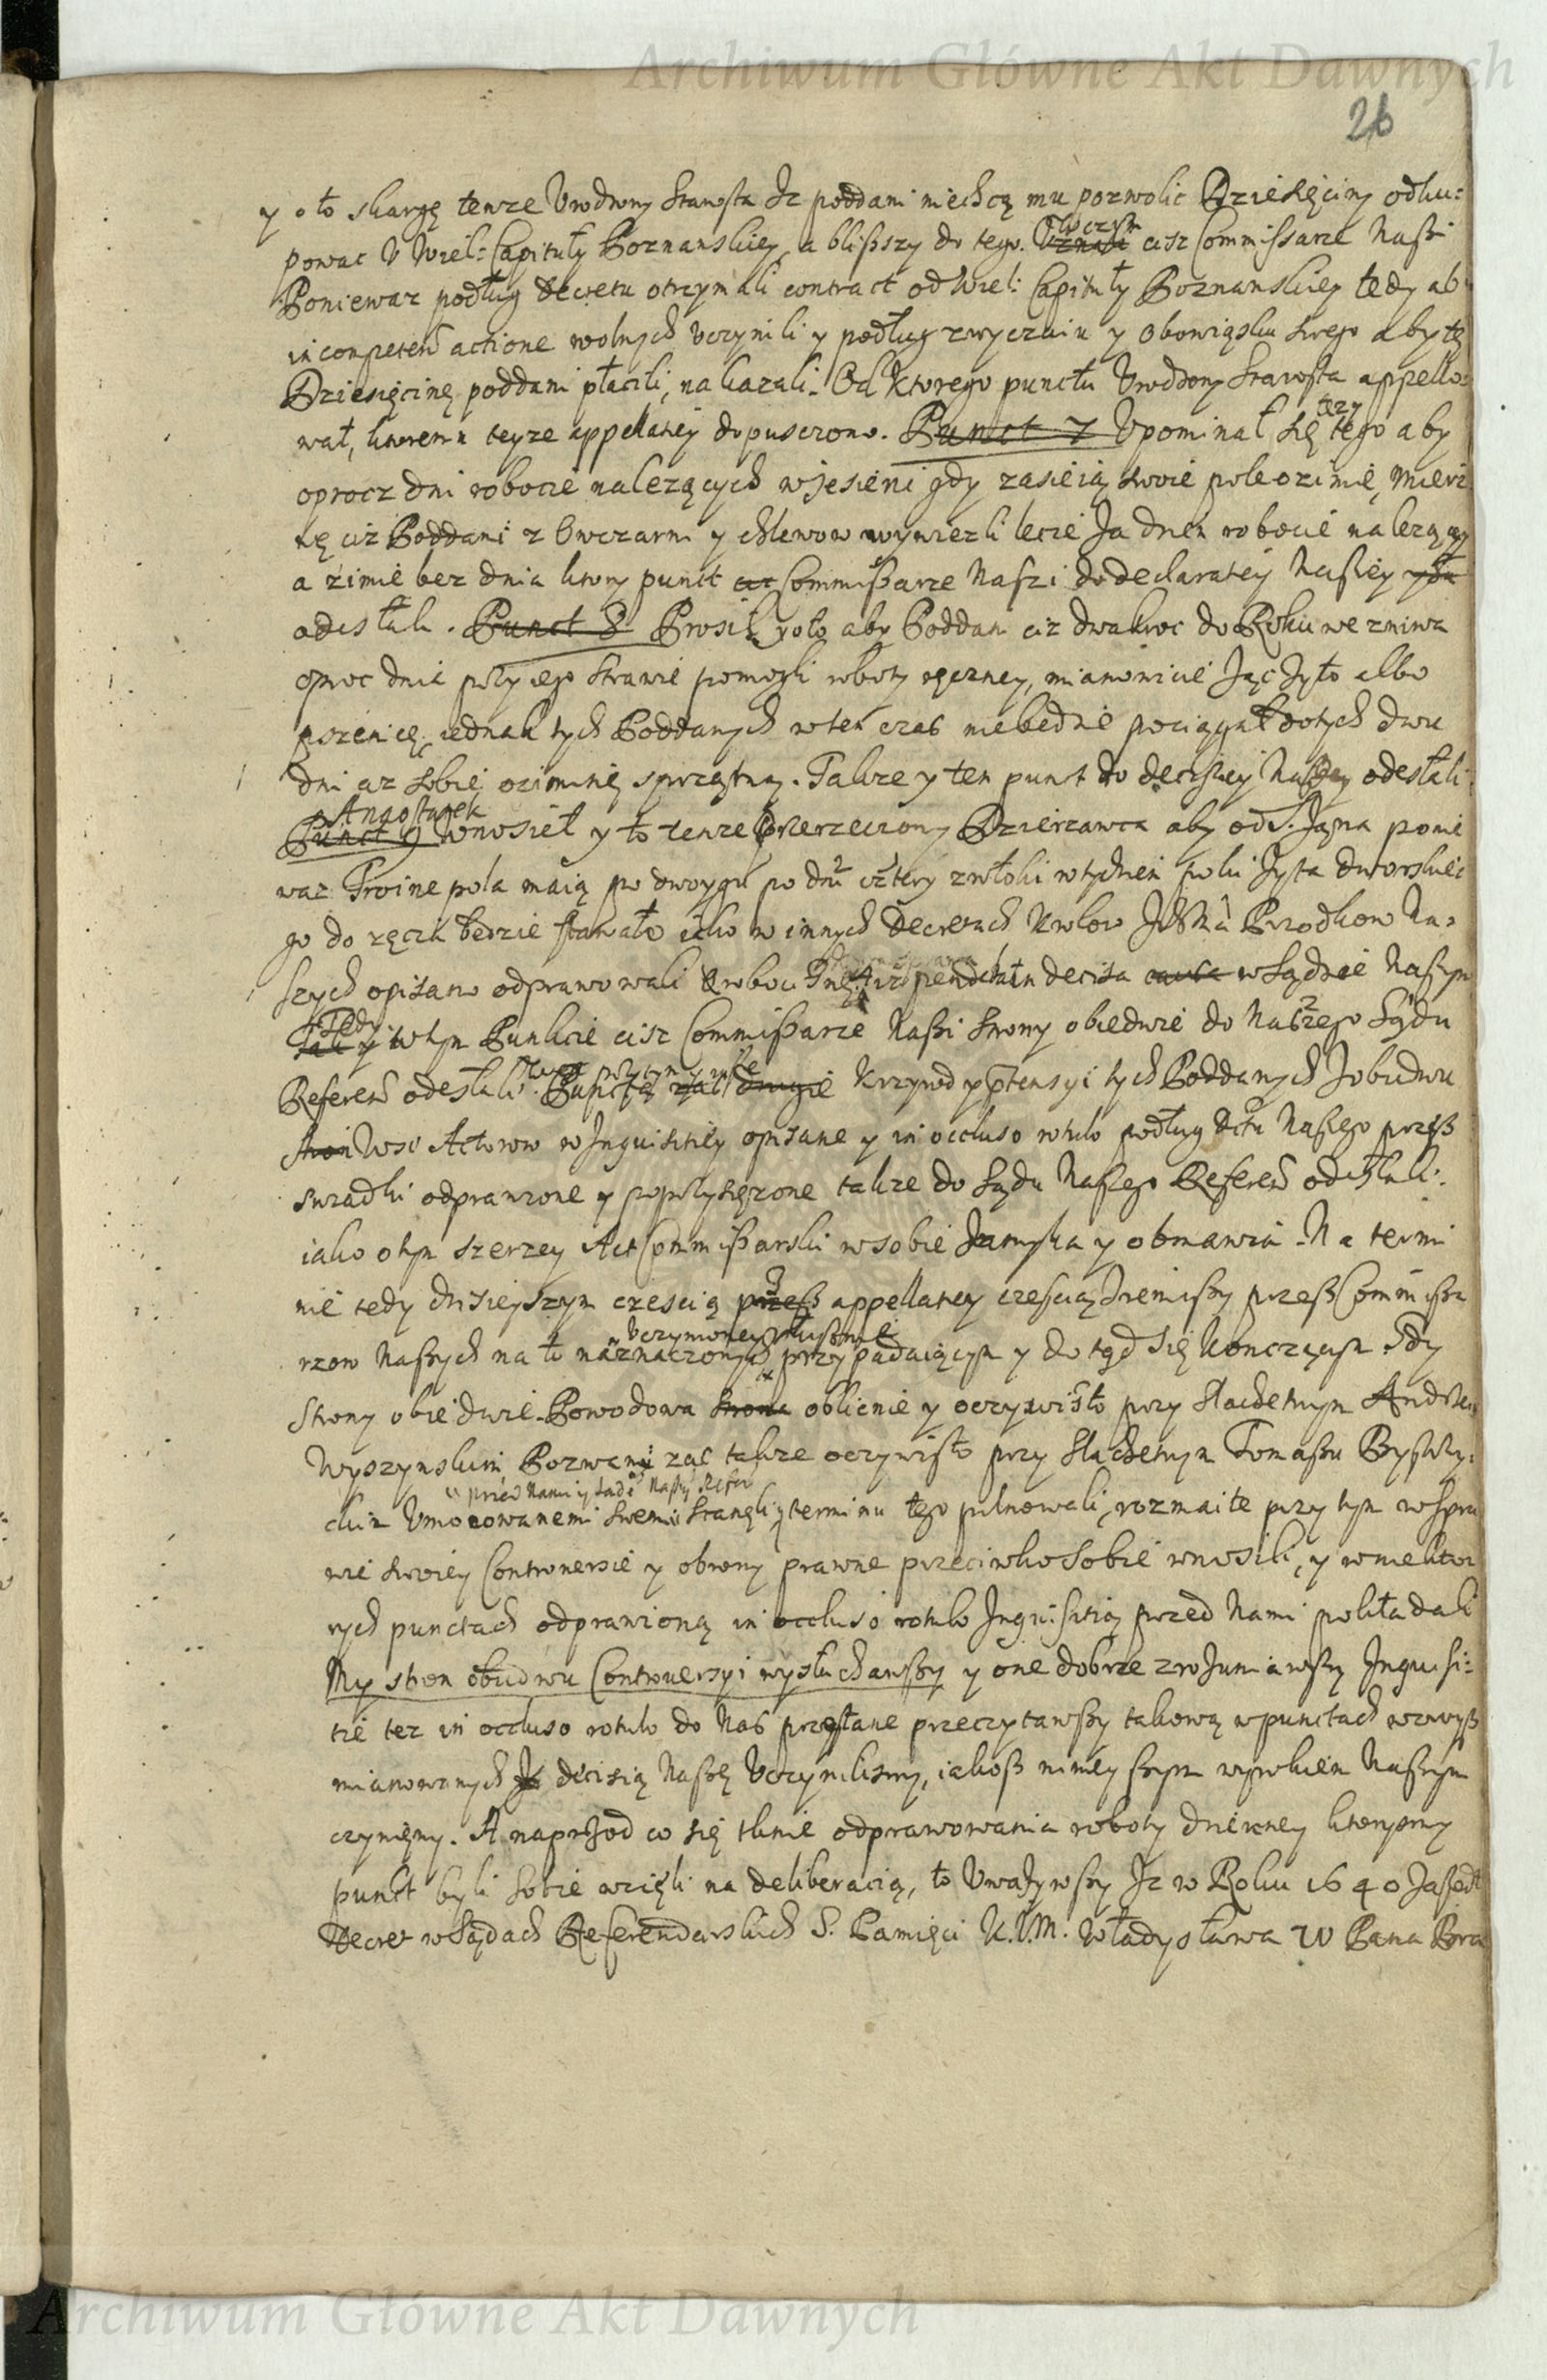 Archiwum Główne Akt Dawnych
26
y o to skargę tenze Vrodzony Starosta Iz poddani niechcą mu pozwolic Dziesięciny odku:
powac V Wiel: Capituły Poznanskiey, a blißszy do tego. cisz Commissarze Naßi
Poniewaz podług decretu otrzymali contract od Wiel: Capituły Poznanskiey tedy ab
incompeten actione wolnych Vczynili y podług zwyczaiu y obowiąsku swego aby tę
Dziesięcinę poddani płacili, nakazali. Od ktorego punctu Vrodzony Starosta appello:
wał, ktoremu teyze appellatiey dopusczono. Punct 7 Vpominał się tesz tego aby
oprocz dni robocie nalezących w jesieni gdy zasieią swoie pole ozimie, mierz
wę ciz Poddani z Owczarni y chlewow wywiezli lecie Za dzien robocie nalezący
a zimie bez dnia ktory punct Commißarze Naszi do declaratiey Naßey
odesłali. Punct 8 Prosił y oto aby Poddani ciz dwakroc do Roku we zniwa
oproc dnia przy iego strawie pomogli roboty ręczney, mianowicie Ząc Zyto albo
pszenicę, iednak tych Poddanych w ten czas niebędzie pociągał do tych dwu
dni az sobie oziminę sprzątną. Takze y ten punct do decisiey Naßey odesłali.
Anaostatek
Punct 9 Wnosieł y to tenze Przerzeczony Dzierzawca aby od S. Jana ponie
waz Troine pola maią po dwoygu po dni cztery zwłoki w tydzien poki Zyta dworskie
go do zęcia będzie stawało iako w innych decretach Krolow IchMci Przodkow Na:
szych opisano odprawowali decisa w Sądzie Naszym
Tedy w tym Punkcie cisz Commißarze Naßi strony obiedwie do Naszego Sądu
Referen odesłali. Krzywd y ptensyi tych Poddanych Zobudwu
Wsi Actorow w Inquisitiey opisane y in occluso rotulo podług Actu Naßego przeß
swiadki odprawione y poprzysięzone takze do Sądu Naßego Referen odesłali.
iako o tym szerzey Act Commißarski w sobie Zamyka y obmawia. Na termi
nie tedy dzisieyszym czescią z appellatiey czescią Zremißy przeß Commißa
Vczynioney słusznie
rzow Naßych na to naznaczonych przypadaiącym y do tąd się konczącym. Gdy
strony obiedwie. Powodowa oblicnie y oczywisto przy Slachetnym Andrzeiu
Wyszynskim Pozwany zas takze oczywisto przy Slachetnym Tomaßu Bystrzy:
przed Nami y Sadē Naßy Refer
ckim Vmocowanemi swemi stanęli, y terminu tego pilnowali, rozmaite przy tym w spra
wie swoiey Controuersie y obrony prawne przeciwko sobie wnosili, y w niekto
rych punctach odprawioną in occluso rotulo Inquisitią przed Nami pokładali
My stron obudwu Controuersyi wysłuchawßy y one dobrze zrozumiawßy Inquisi:
tie tez in occluso rotulo do Nas przesłane przeczytawßy takową w punctach wzwyß
mianowanych decisią Naßę Vczynilismy, iakoß ninieyßym wyrokiem Naßym
czynięmy. A naprzod co się tknie odprawowania roboty dzienney ktorysmy
punkt byli sobie wzięli na deliberacią, to Vwazywßy Iz w Roku 1640 Zaßedł
decret w Sądach Referendarskich S. Pamięci K.J.M. Władysława IV Pana Bra
Archiwum Główne Akt Dawnych